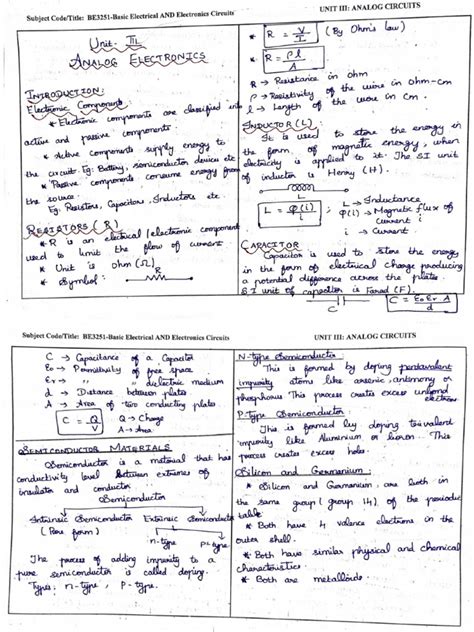 Subject Code/Title: BE3251-Basic Electrical AND Electronics Circuits
UNIT III: ANALOG CIRCUITS
Unit - III
ANALOG ELECTRONICS
INTRODUCTION:
Electronic Components
* Electronic components are classified into
active and passive components.
* Active components supply energy to
the circuit. Eg: Battery, semiconductor devices etc
* Passive components consume energy from
the source.
Eg: Resistors, Capacitors, Inductors etc.
RESISTORS (R)
* R is an electrical/electronic component
used to limit the flow of current.
* Unit is ohm (Ω)
* Symbol:
* R = V/I (By Ohm's law)
* R = ρl/A
R → Resistance in ohm
ρ → Resistivity of the wire in ohm-cm
l → Length of the wire in cm.
INDUCTOR (L)
It is used to store the energy in
the form of magnetic energy, when
electricity is applied to it. The SI unit
of inductor is Henry (H).
L = φ(i)/i
L → Inductance
φ(i) → Magnetic flux of
current i
i → Current
CAPACITOR
Capacitor is used to store the energy
in the form of electrical charge producing
a potential difference across the plates.
SI unit of capacitor is Farad (F).
C
C = ε0 εr A / d
Subject Code/Title: BE3251-Basic Electrical AND Electronics Circuits
UNIT III: ANALOG CIRCUITS
C → Capacitance of a Capacitor
ε0 → Permittivity of free space
εr → " " dielectric medium
d → Distance between plates
A → Area of two conducting plates
C = Q/V
Q → Charge
A → Area
SEMICONDUCTOR MATERIALS
Semiconductor is a material that has
conductivity level between extremes of
insulator and conductor.
Semiconductor
Intrinsic Semiconductor Extrinsic Semiconductor
(Pure form)
n-type p type
The process of adding impurity to a
pure semiconductor is called doping.
Types: n-type, P-type.
N-type Semiconductor
This is formed by doping pentavalent
impurity atoms like arsenic, antimony or
phosphorus This process creates excess
electron
P-type Semiconductor
This is formed by doping trivalent
impurity like Aluminium or boron. This
process creates excess holes.
Silicon and Germanium
* Silicon and Germanium are both in
the same group (group 14) of the periodic
table
* Both have 4 valence electrons in the
outer shell.
* Both have similar physical and chemical
characteristics
* Both are metalloids